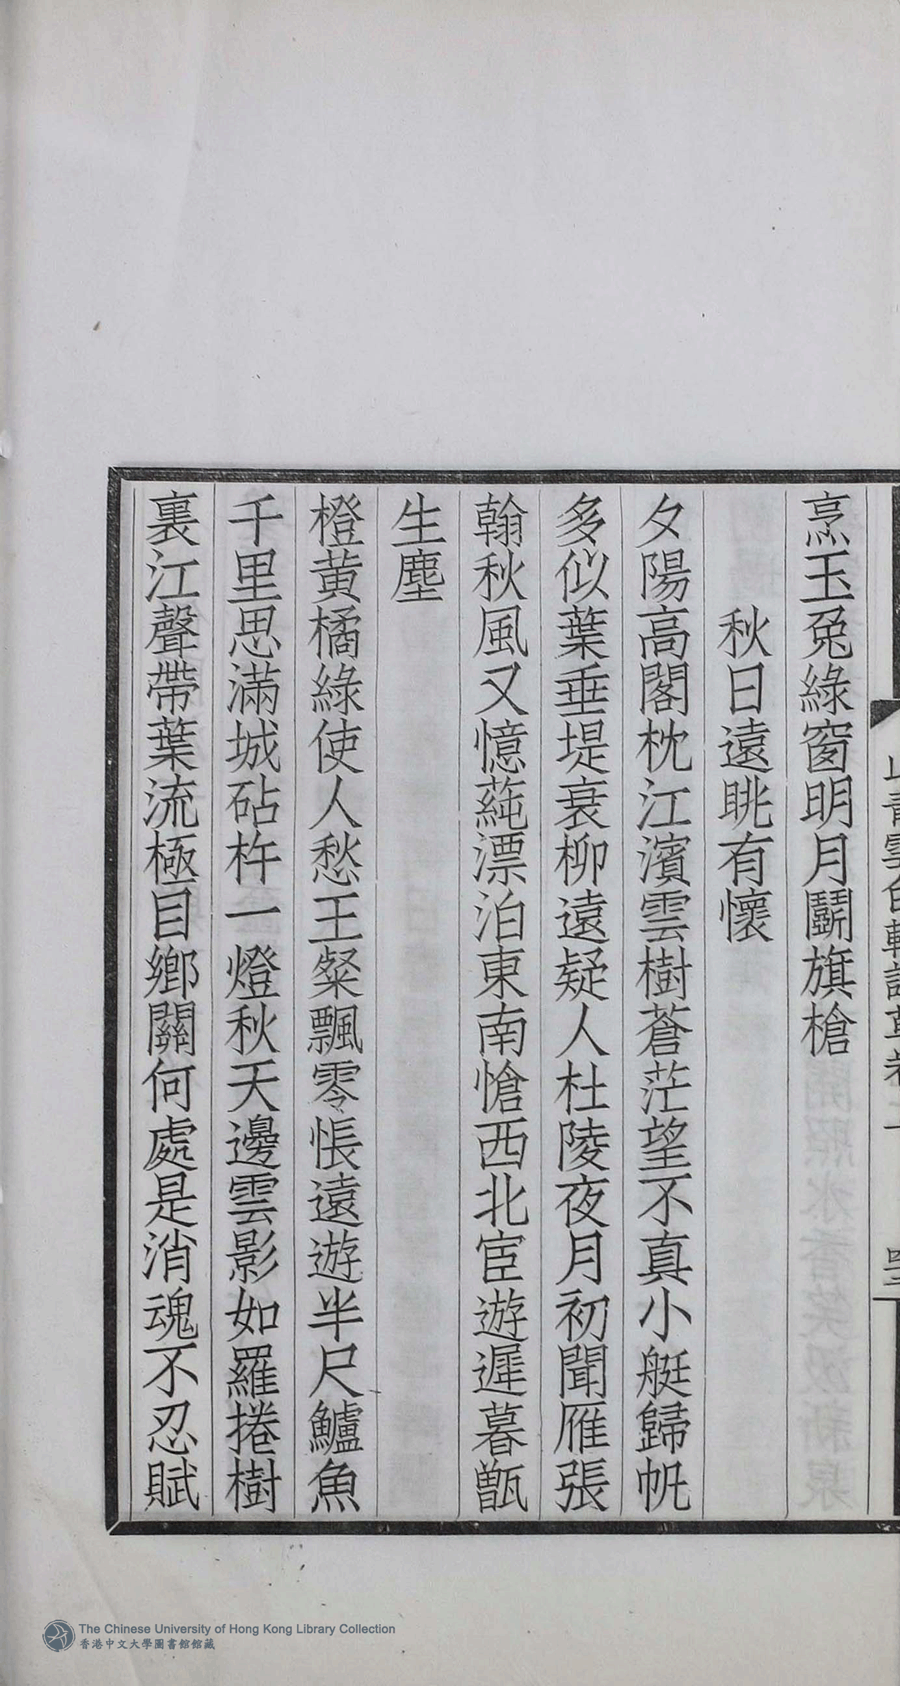 烹玉兔綠窗明月鬭旗槍
秋日遠眺有懷
夕陽高閣枕江濱雲樹蒼茫望不真小艇歸帆
多似葉垂堤衰柳遠疑人杜陵夜月初聞雁張
翰秋風又憶蒓漂泊東南愴西北宦遊遲暮甑
生塵
橙黃橘綠使人愁王粲飄零悵遠遊半尺鱸魚
千里思滿城砧杵一燈秋天邊雲影如羅捲樹
裏江聲帶葉流極目鄉關何處是消魂不忍賦
The Chinese University of Hong Kong Library Collection
香港中文大學圖書館館藏